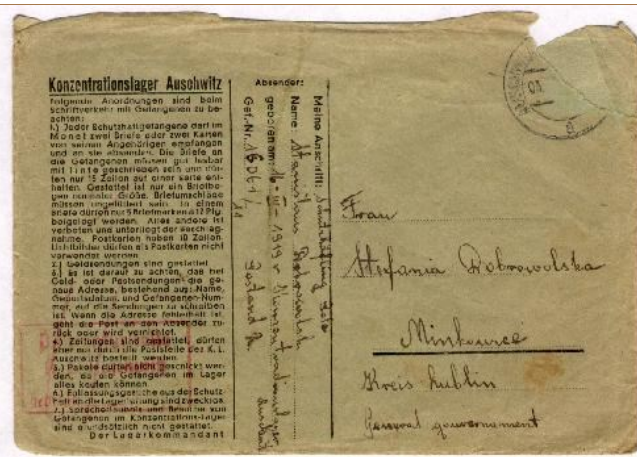 Konzentrationslager Auschwitz
Folgende Anordnungen sind beim
Schriftverkehr mit Gefangenen zu be-
achten:
1.) Jeder Schutzhaftgefangene darf im
Monat zwei Briefe oder zwei Karten
von seinen Angehörigen empfangen
und an sie absenden. Die Briefe an
die Gefangenen müssen gut lesbar
mit Tinte geschrieben sein und dür-
fen nur 15 Zeilen auf einer Seite ent-
halten. Gestattet ist nur ein Briefbo-
gen normaler Größe. Briefumschläge
müssen ungefüttert sein. In einem
Briefe dürfen nur 5 Briefmarken à 12 Pfg
beigelegt werden. Alles andere ist
verboten und unterliegt der Beschlag-
nahme. Postkarten haben 10 Zeilen.
Lichtbilder dürfen als Postkarten nicht
verwendet werden.
2.) Geldsendungen sind gestattet.
3.) Es ist darauf zu achten, daß bei
Geld- oder Postsendungen die ge-
naue Adresse, bestehend aus: Name,
Geburtsdatum, und Gefangenen-Num-
mer, auf die Sendungen zu schreiben
ist. Wenn die Adresse fehlerhaft ist,
geht die Post an den Absender zu-
rück oder wird vernichtet.
4.) Zeitungen sind gestattet, dürfen
aber nur durch die Poststelle des K. L.
Auschwitz bestellt werden.
5.) Pakete dürfen nicht geschickt wer-
den, da die Gefangenen im Lager
alles kaufen können.
6.) Entlassungsgesuche aus der Schutz-
haft an die Lagerleitung sind zwecklos.
7.) Sprecherlaubnis und Besuche von
Gefangenen im Konzentrations-Lager
sind grundsätzlich nicht gestattet.
Der Lagerkommandant
Absender:
Meine Anschrift: Schutzhäftling
Name: Stanislaus
geboren am: 1919
Gef.-Nr.
Frau
Stefania Dobrowolska
Minkowice
Kreis Lublin
General gouvernement